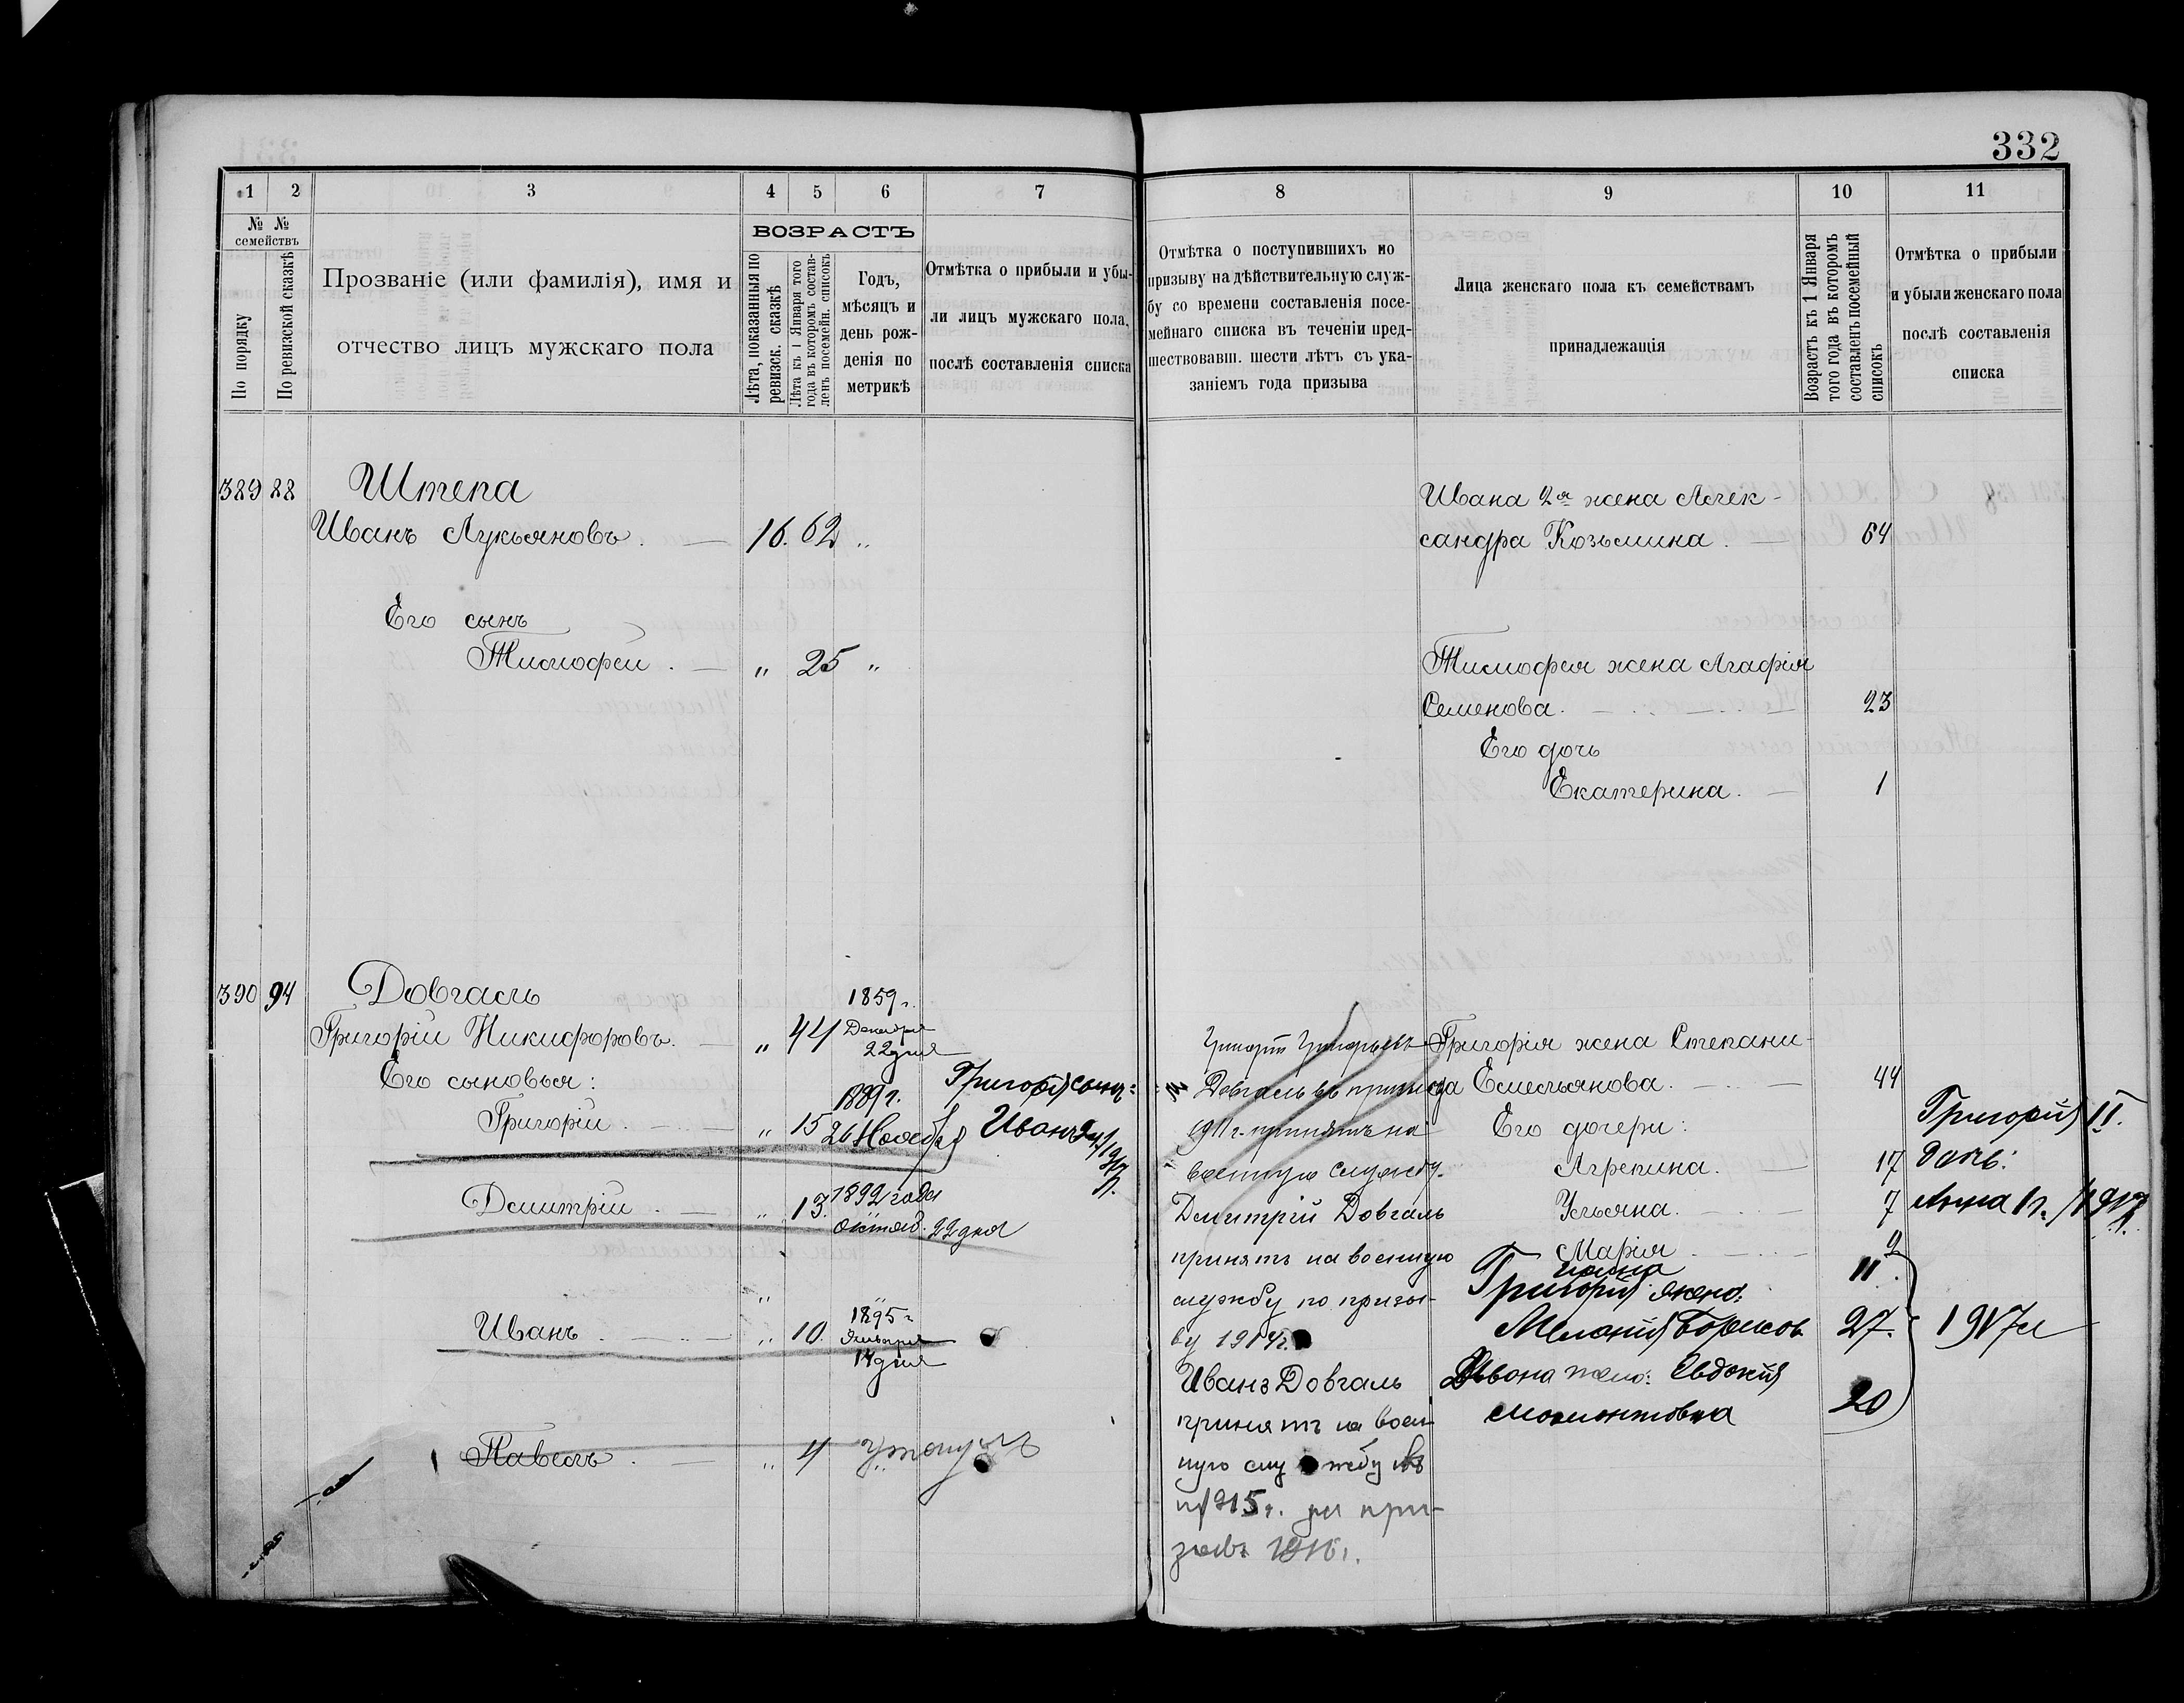 332
1 2 3 4 5 6 7
№ № семействъ
По порядку
По ревизской сказкѣ
Прозваніе (или фамилія), имя и
отчество лицъ мужскаго пола
ВОЗРАСТЪ
Лѣта, показанныя по
ревизск. сказкѣ
Лѣта къ 1 Января того
года въ которомъ состав-
ленъ посемейн. списокъ
Годъ,
мѣсяцъ и
день рож-
денія по
метрикѣ
Отмѣтка о прибыли и убы-
ли лицъ мужскаго пола,
послѣ составленія списка
389 88 Штепа
Иванъ Лукьяновъ. — 16. 62 „
Его сынъ
Тимофей. — „ 25 „
390 94 Довгаль
1859 г.
Григорій Никифоровъ. — „ 44 Декабря
22 дня
Его сыновья:
1889 г.
Григорій — „ 15 26 Ноября
Григорія сынъ:
Иванъ
Демитрій. — „ 13. 1892 года
октяб. 22 дня
„
Иванъ. — „ 10. 1895 г.
Января
14 дня
Павелъ. — „ 4 утонулъ
8 9 10 11
Отмѣтка о поступившихъ по
призыву на дѣйствительную служ-
бу со времени составленія посе-
мейнаго списка въ теченіи пред-
шествовавш. шести лѣтъ съ ука-
заніемъ года призыва
Лица женскаго пола къ семействамъ
принадлежащія
Возрастъ къ 1 Января
того года въ которомъ
составленъ посемейный
списокъ
Отмѣтка о прибыли
и убыли женскаго пола
послѣ составленія
списка
Ивана 2я жена Алек-
сандра Козьмина. — 64
Тимофея жена Агафія
Семенова. — 23
Его дочь
Екатерина. — 1
Григорій Григорьевъ
Довгаль въ призывъ
1911 г. принятъ на
военную службу.
Демитрій Довгаль
принятъ на военную
службу по призы-
ву 1914 г.
Иванъ Довгаль
принятъ на воен-
ную службу въ
1915 г. по при-
зыву 1916 г.
Григорія жена Степани-
да Емельянова. — 44
Его дочери:
Агрепина. — 17
Ульяна. — 7
Марія — 2
Ганна 11.
Григорія жена:
Меланія Борисов 27.
Ивана жена: Евдокія
Мамонтовна 20
1917 г.
Григорія II.
дочь:
Анна